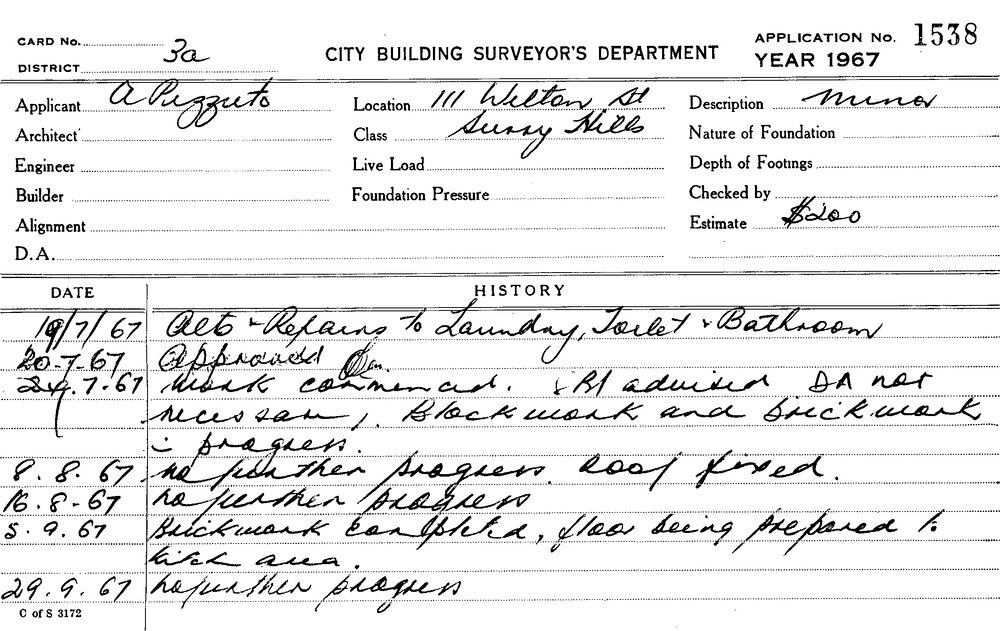 CARD No.
3a
DISTRICT
CITY BUILDING SURVEYOR'S DEPARTMENT
APPLICATION No. 1538
YEAR 1967
Applicant A Pezzuto
Location 111 Wilton St
Description Minor
Architect
Class Surry Hills
Nature of Foundation
Engineer
Live Load
Depth of Footings
Builder
Foundation Pressure
Checked by
Alignment
Estimate $200
D.A.
DATE
HISTORY
19/7/67 Alts & Repairs to Laundry, Toilet & Bathroom
20-7-67 Approved
24.7.67 Work commenced. & advised DA not
necessary. Blockwork and brickwork
in progress.
8.8.67 no further progress. roof fixed.
16.8-67 no further progress
5.9.67 Brickwork completed, floor being prepared to
kitch area.
29.9.67 no further progress
C of S 3172